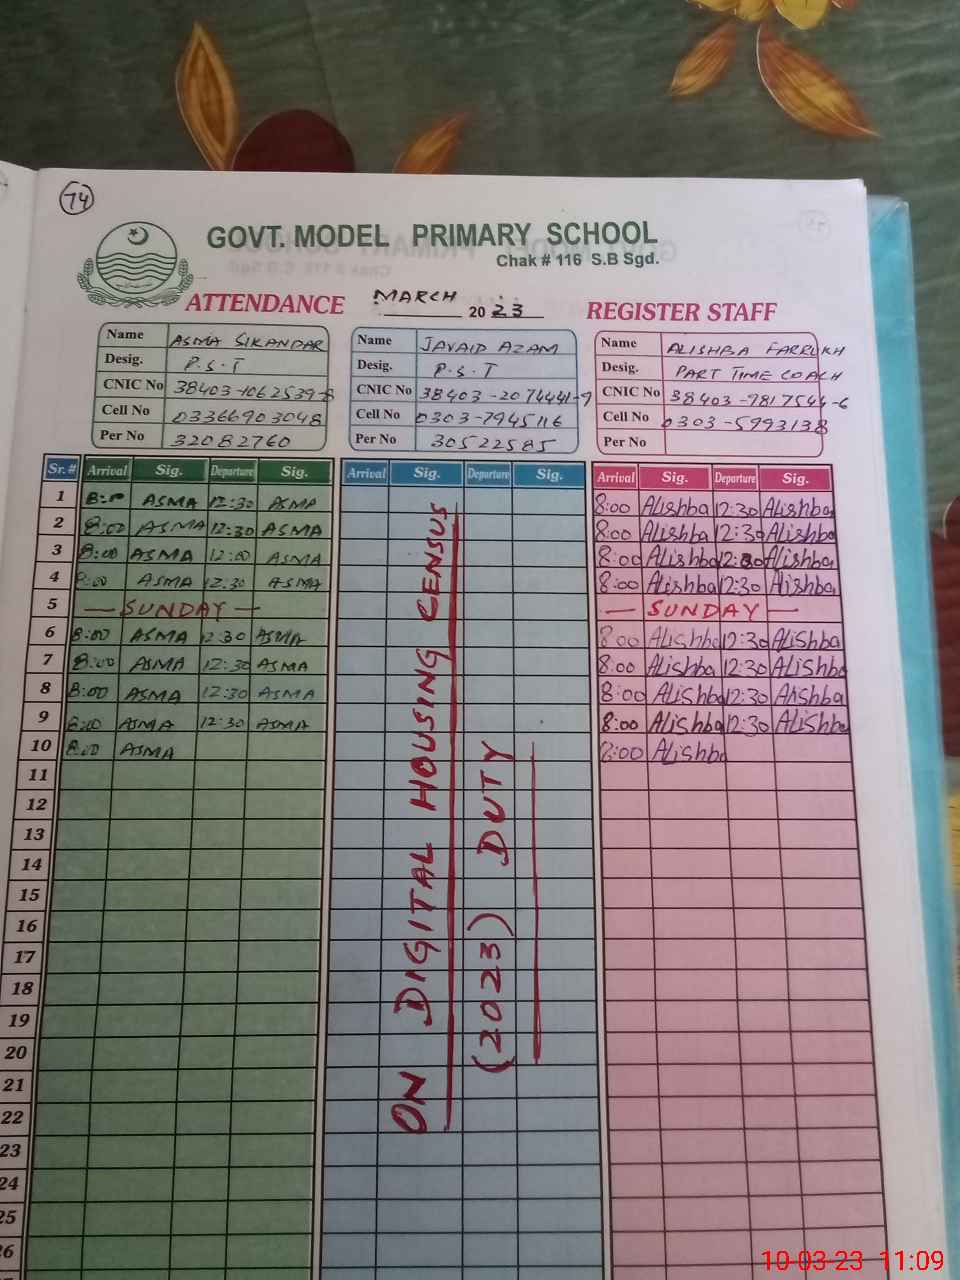 74
GOVT. MODEL PRIMARY SCHOOL
Chak # 116 S.B Sgd.
ATTENDANCE MARCH 2023 REGISTER STAFF
Name ASMA SIKANDAR
Desig. P.S.T
CNIC No 38403-1062539-8
Cell No 03366903048
Per No 32082760
Name JAVAID AZAM
Desig. P.S.T
CNIC No 38403-2074441-9
Cell No 0303-7945116
Per No 30522585
Name ALISHBA FARRUKH
Desig. PART TIME COACH
CNIC No 38403-7817544-6
Cell No 0303-5993138
Per No
Sr.# Arrival Sig. Departure Sig. Arrival Sig. Departure Sig. Arrival Sig. Departure Sig.
1 8:00 ASMA 12:30 ASMA 8:00 Alishba 12:30 Alishba
2 8:00 ASMA 12:30 ASMA 8:00 Alishba 12:30 Alishba
3 8:00 ASMA 12:00 ASMA 8:00 Alishba 12:00 Alishba
4 8:00 ASMA 12:30 ASMA 8:00 Alishba 12:30 Alishba
5 — SUNDAY — — SUNDAY —
6 8:00 ASMA 12:30 ASMA 8:00 Alishba 12:30 Alishba
7 8:00 ASMA 12:30 ASMA 8:00 Alishba 12:30 Alishba
8 8:00 ASMA 12:30 ASMA 8:00 Alishba 12:30 Alishba
9 8:00 ASMA 12:30 ASMA 8:00 Alishba 12:30 Alishba
10 8:00 ASMA 8:00 Alishba
11
12
13
14
15
16
17
18
19
20
21
22
23
24
25
26
ON DIGITAL HOUSING CENSUS
(2023) DUTY
10-03-23 11:09